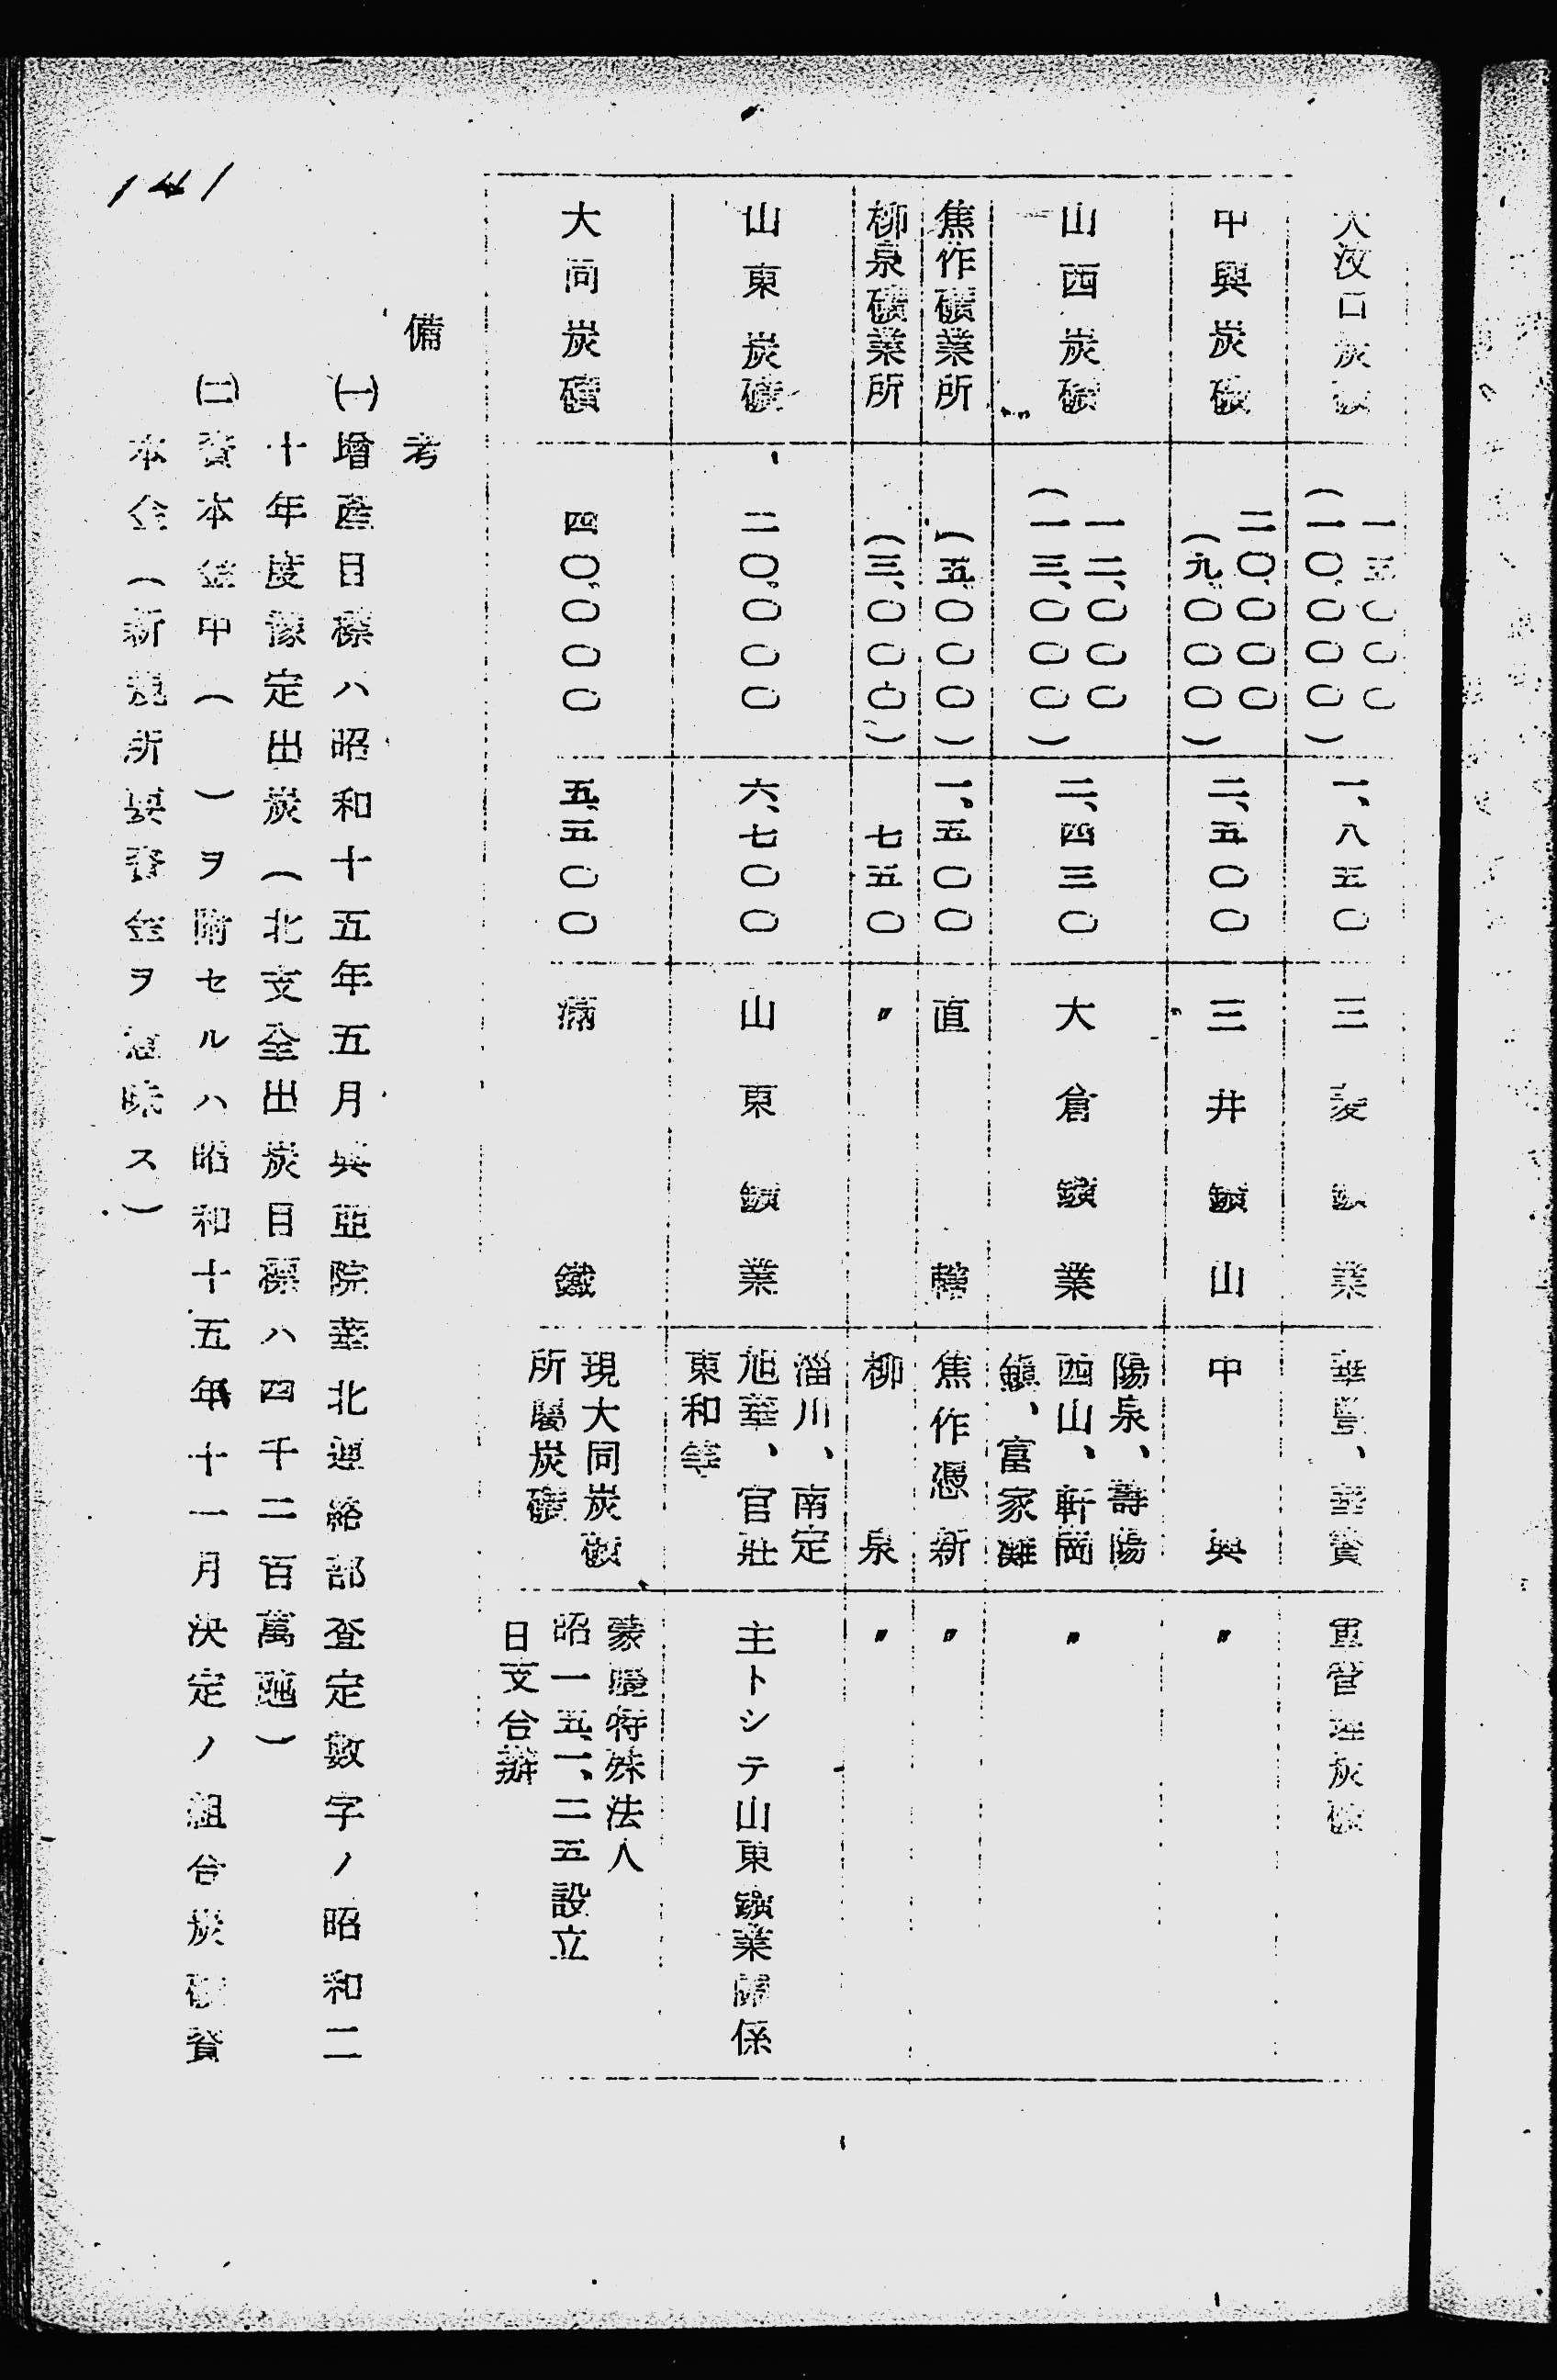 大汶口炭礦
一五、〇〇〇
（一〇、〇〇〇）
一、八五〇
三菱鑛業
華豐、華寶
軍管理炭礦
中興炭礦
二〇、〇〇〇
（九、〇〇〇）
二、五〇〇
三井鑛山
中興
〃
山西炭礦
一二、〇〇〇
（一三、〇〇〇）
二、四三〇
大倉鑛業
陽泉、壽陽
西山、軒崗
鎭、富家灘
〃
焦作礦業所
（五、〇〇〇）
一、五〇〇
直轄
焦作憑新
〃
柳泉礦業所
（三、〇〇〇）
七五〇
〃
柳泉
〃
山東炭礦
二〇、〇〇〇
六、七〇〇
山東鑛業
淄川、南定
旭華、官莊
東和等
主トシテ山東鑛業關係
大同炭礦
四〇、〇〇〇
五、五〇〇
滿鐵
現大同炭礦
所屬炭礦
蒙疆特殊法人
昭一五、一、二五設立
日支合辦
備考
㈠增產目標ハ昭和十五年五月興亞院華北連絡部查定數字ノ昭和二
十年度豫定出炭（北支全出炭目標ハ四千二百萬瓲）
㈡資本金中（　）ヲ附セルハ昭和十五年十一月決定ノ組合炭礦資
本金（新規所要資金ヲ意味ス）
141